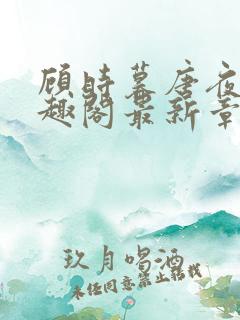 顾时暮唐夜
趣阁最新章
玖月喝酒
未经同意禁止转载